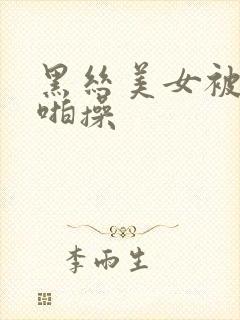 黑丝美女被
啪操
李雨生